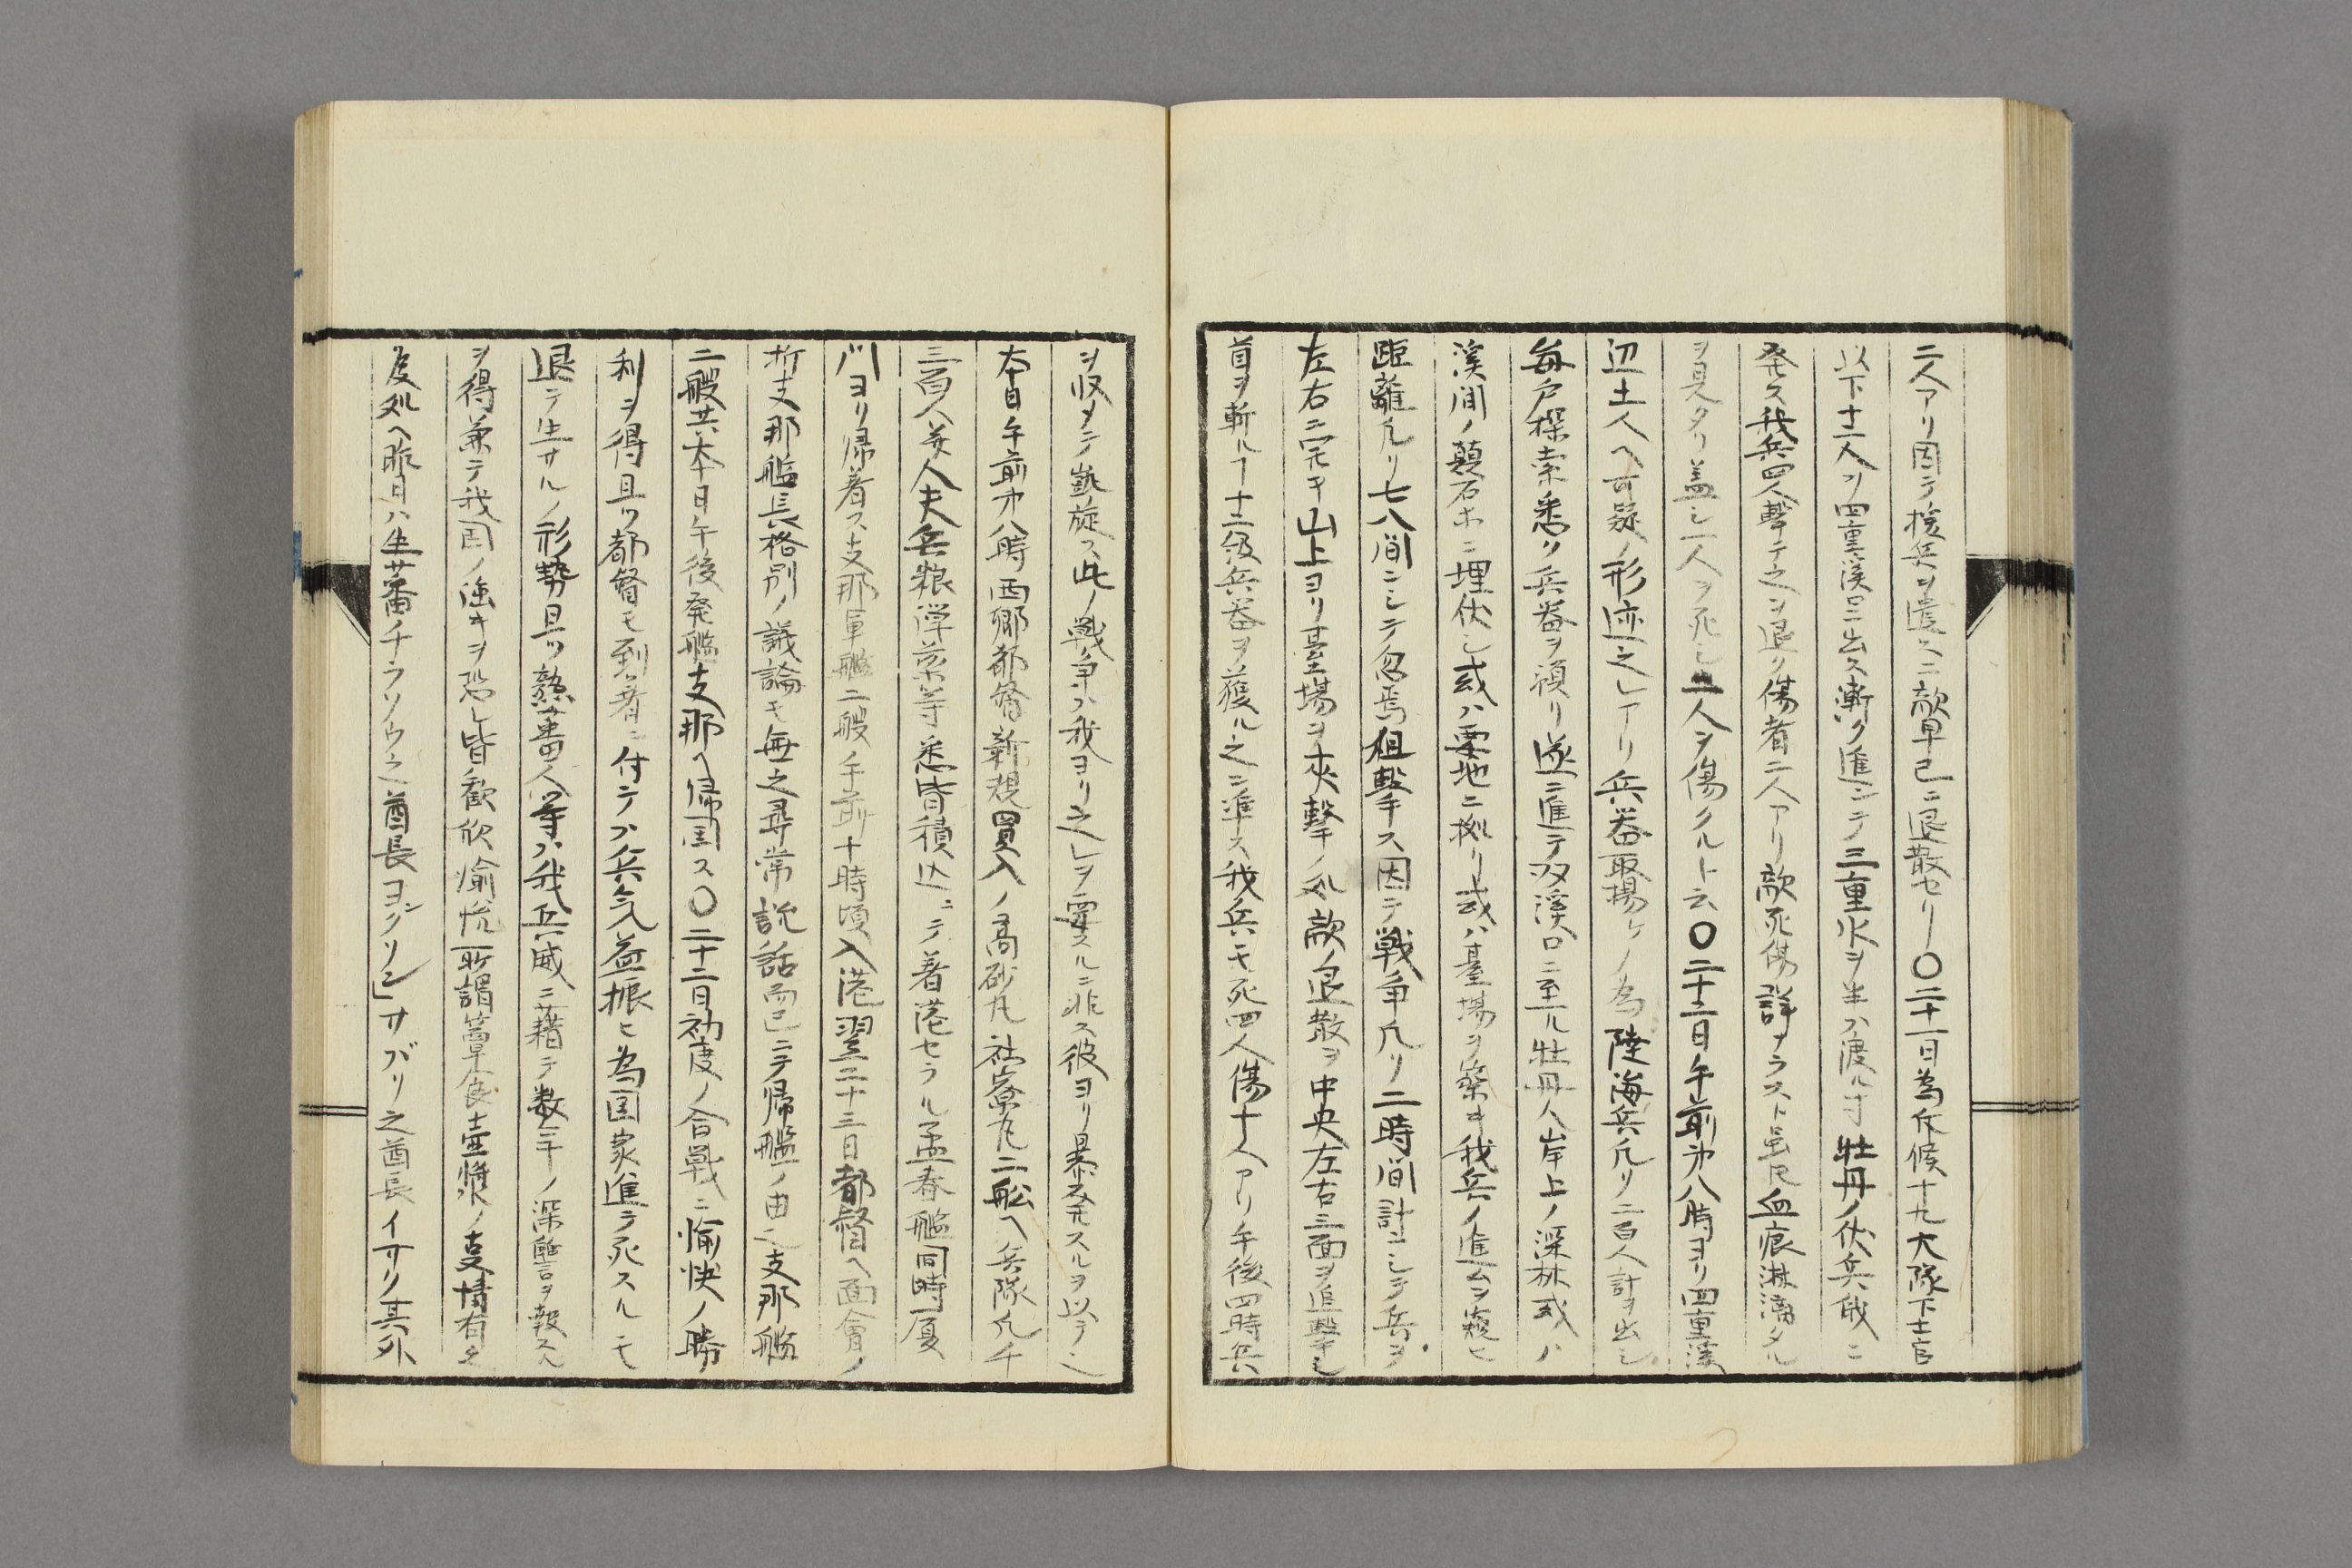 二人アリ因テ援兵ヲ遣スニ敵早已ニ退散セリ〇二十一日為斥候十九大隊下士官
以下十二人ヲ四重溪口ニ出ス漸ク進ンテ三重水ヲ半ハ渡ル寸牡丹ノ伏兵俄ニ
発ス我兵四人撃テ之ヲ退ク傷者二人アリ敵死傷詳ナラスト虽𪜈血痕淋漓タル
ヲ見タリ蓋シ一人ヲ死シ二人ヲ傷クルト云〇二十二日午前第八時ヨリ四重溪
辺土人ヘ可疑ノ形迹之レアリ兵器取揚ケノ為陸海兵凡リ二百人計ヲ出シ
毎戸探索悉ク兵器ヲ預リ遂ニ進テ双溪口ニ至ル牡丹人岸上ノ深林或ハ
溪間ノ顛石ホニ埋伏シ或ハ要地ニ拠リ或ハ臺場ヲ築キ我兵ノ進ムヲ窺ヒ
距離凡リ七八間ニシテ忽焉狙撃ス因テ戦争凡リ二時間計ニシテ兵ヲ
左右ニ完キ山上ヨリ臺場ヲ夾撃ノ処敵退散ヲ中央左右三面ヲ追撃シ
首ヲ斬ルヿ十二級兵器ヲ獲ル之ニ準ス我兵モ死四人傷十人アリ午後四時兵
ヲ収メテ凱旋ス此ノ戦争ハ我ヨリ之レヲ要スルニ非ス彼ヨリ暴発スルヲ以テ也
本日午前第八時西郷都督新規買入ノ高砂丸社寮丸二船ヘ兵隊凡千
三百人并人夫兵粮弾薬等悉皆積込ニテ着港セラル孟春艦同時厦
門ヨリ帰着ス支那軍艦二艘午前十時頃入港翌二十三日都督ヘ面會ノ
折支那艦長格別ノ議論モ無之尋常説話而已ニテ帰艦ノ由也支那艦
二艘共本日午後発艦支那ヘ帰国ス〇二十二日初度ノ合戦ニ愉快ノ勝
利ヲ得且ツ都督モ到着ニ付テハ兵気益振ヒ為国家進テ死スルモ
退テ生サルノ形勢且ツ熟蕃人等ハ我兵威ニ藉テ数年ノ深讐ヲ報スル
ヲ得兼テ我国ノ強キヲ恐レ皆歓欣愉悦所謂簞食壺漿ノ支情有之
度処ヘ昨日ハ生蕃チラソウ之酋長ヨンクリン」サバリ之酋長イサリ其外